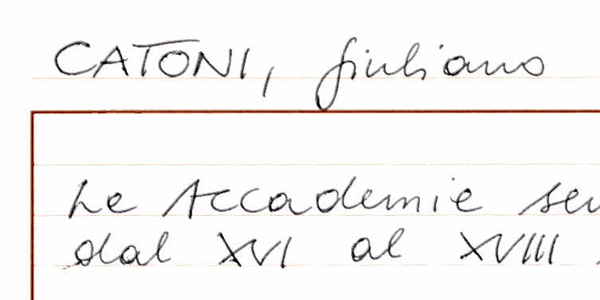 CATONI, Giuliano
Le Accademie sen
dal XVI al XVIII